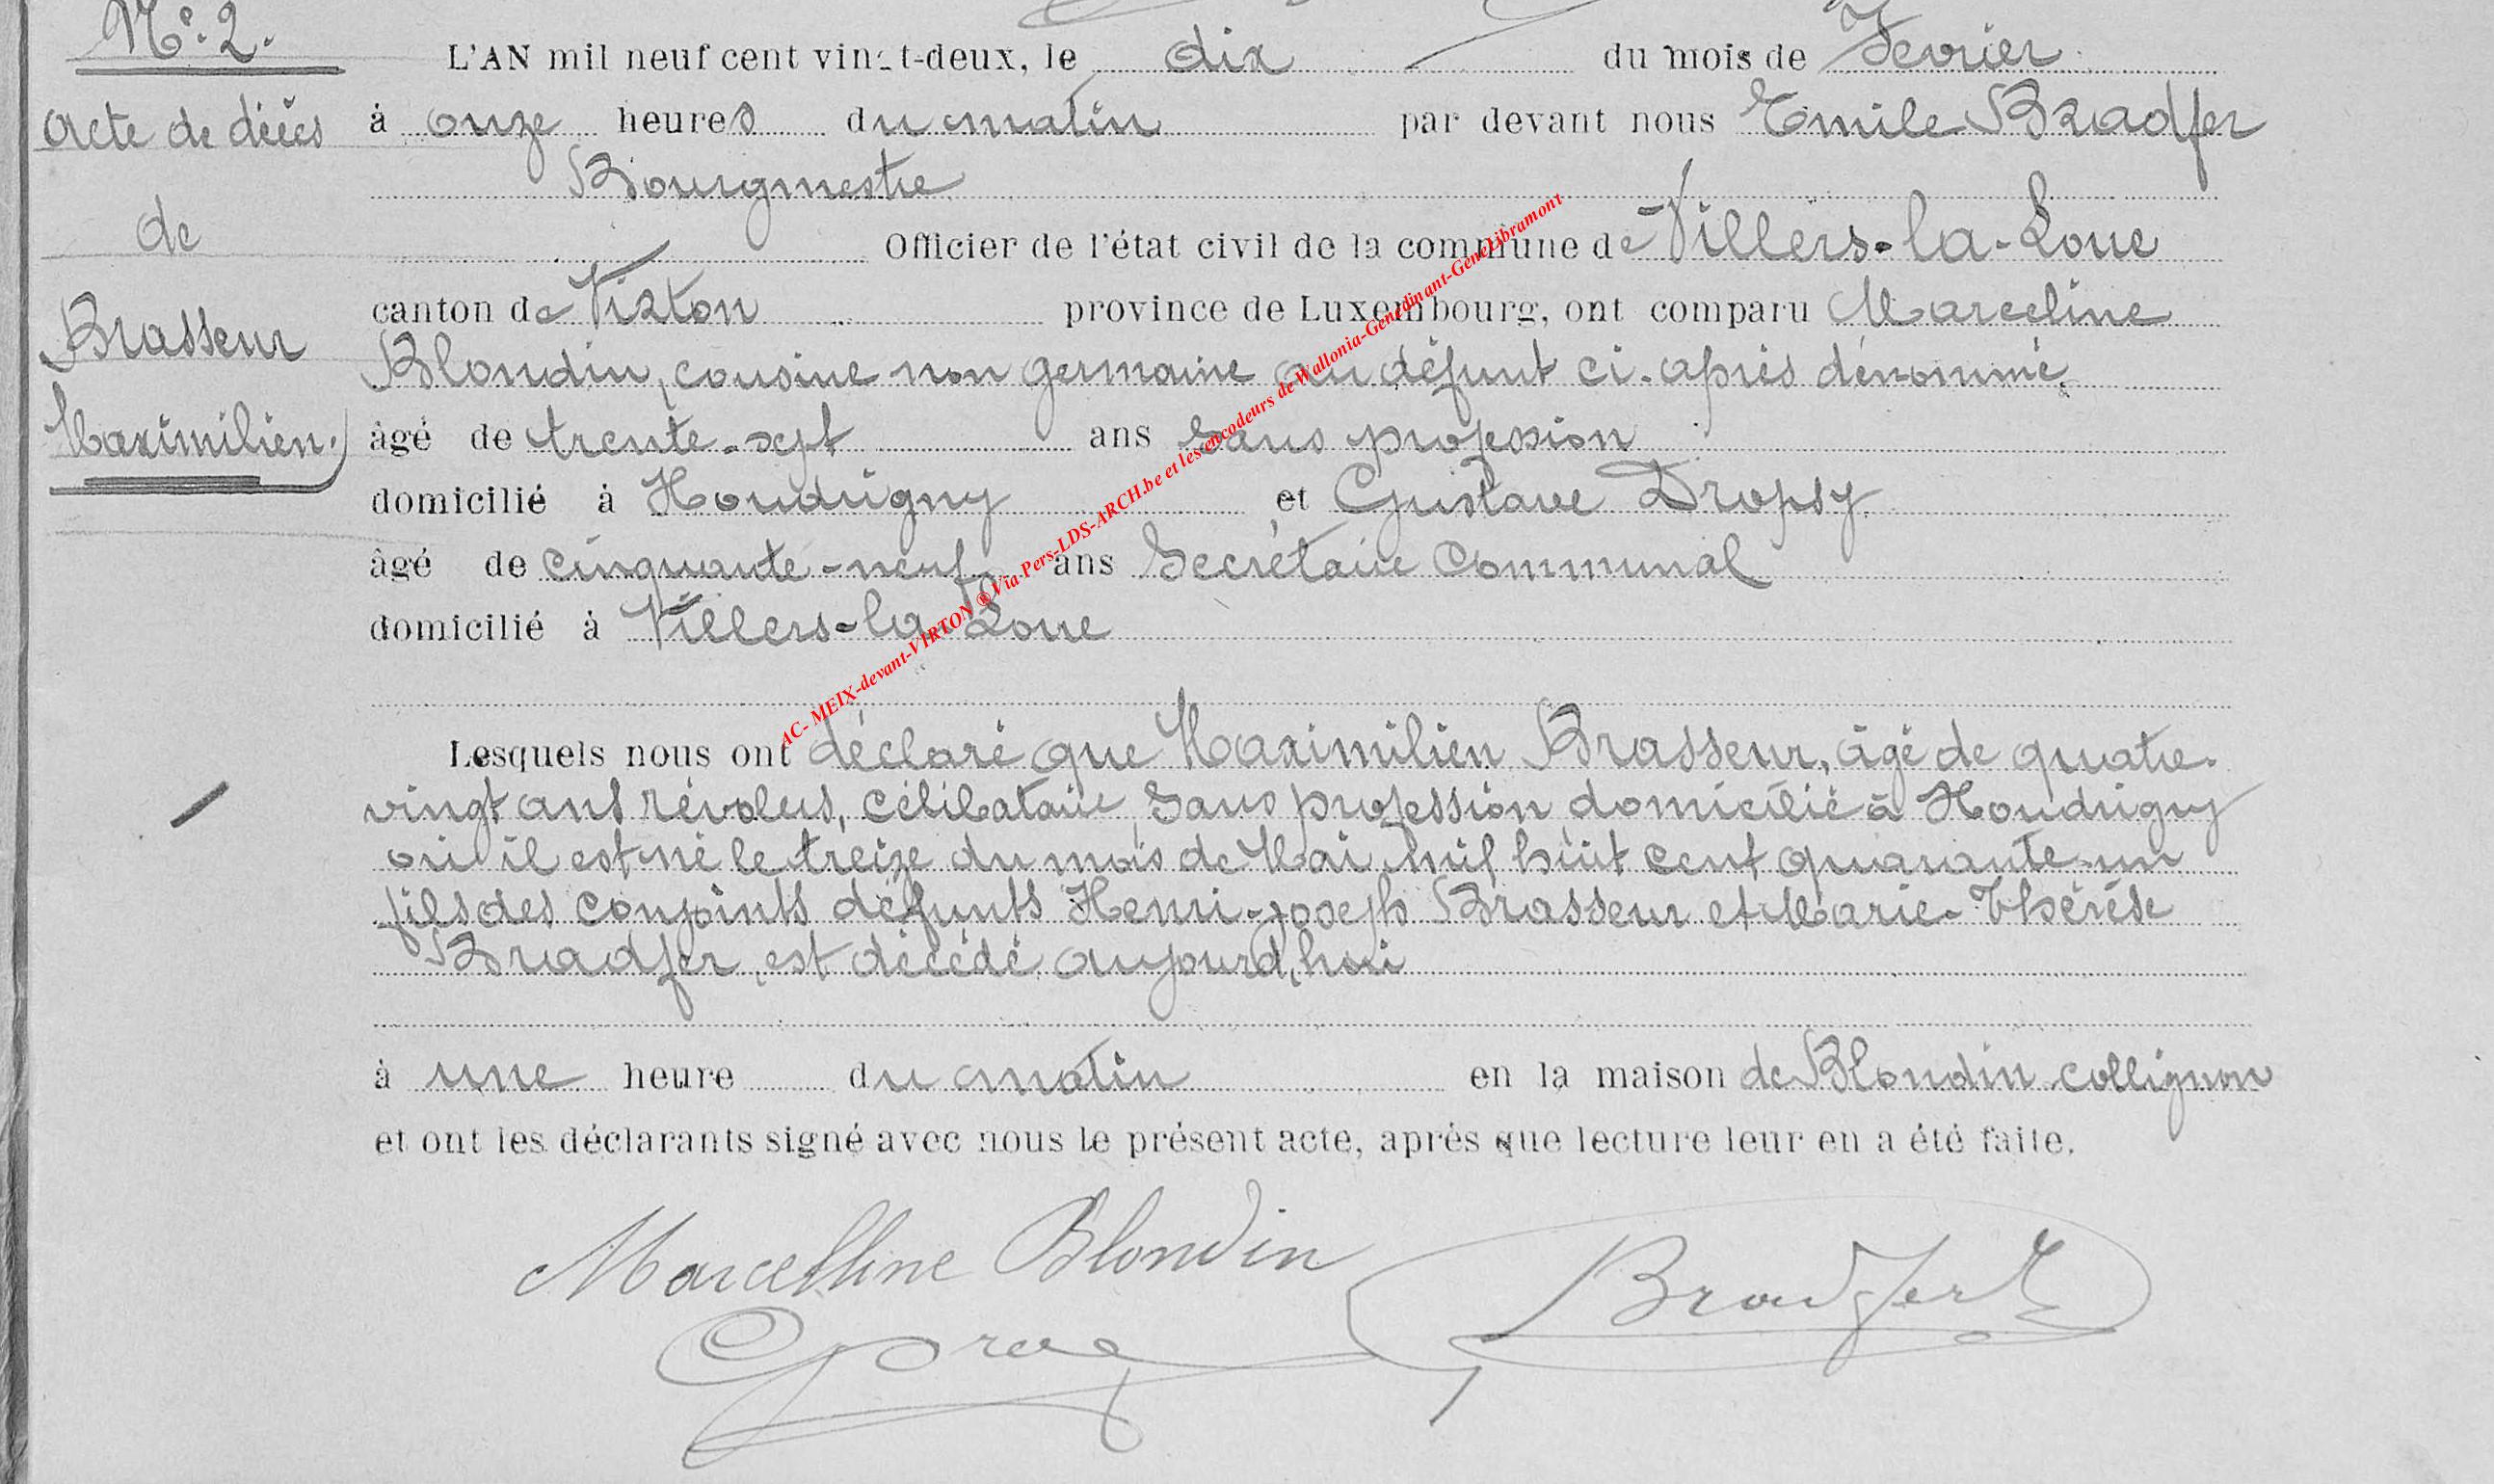 N°. 2.
Acte de décès
de
Brasseur
Maximilien.
L'AN mil neuf cent vingt-deux, le dix du mois de Fevrier
à onze heures du matin par devant nous Emile Bradfer
Bourgmestre
Officier de l'état civil de la commune de Villers-la-Loue
canton de Virton province de Luxembourg, ont comparu Marceline
Blondin, cousine non germaine au défunt ci-après dénommé,
âgé de trente-sept ans sans profession
domicilié à Houdrigny et Gustave Dropsy
âgé de cinquante-neuf ans Secrétaire Communal
domicilié à Villers-la-Loue
Lesquels nous ont déclaré que Maximilien Brasseur, âgé de quatre-
vingt ans révolus, célibataire, sans profession domicilié à Houdrigny
où il est né le treize du mois de Mai mil huit cent quarante-un
fils des conjoints défunts Henri-Joseph Brasseur et Marie-Thérèse
Bradfer, est décédé aujourd'hui
à une heure du matin en la maison de Blondin collignon
et ont les déclarants signé avec nous le présent acte, après que lecture leur en a été faite.
Marcelline Blondin
Bradfer E
AC- MEIX-devant-VIRTON ® Via Pers-LDS-ARCH.be et les encodeurs de Wallonia-Genedinant-GeneLibramont